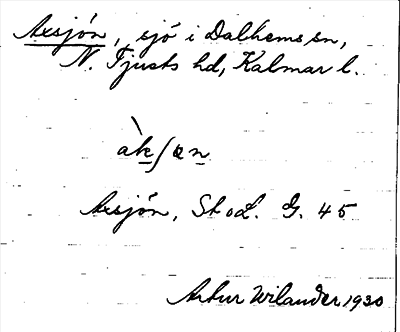 Axsjön, sjö i Dalhems sn,
N. Tjusts hd, Kalmar l.
àkʃøn
Axsjön, St o L. G. 45
Artur Wilander 1930